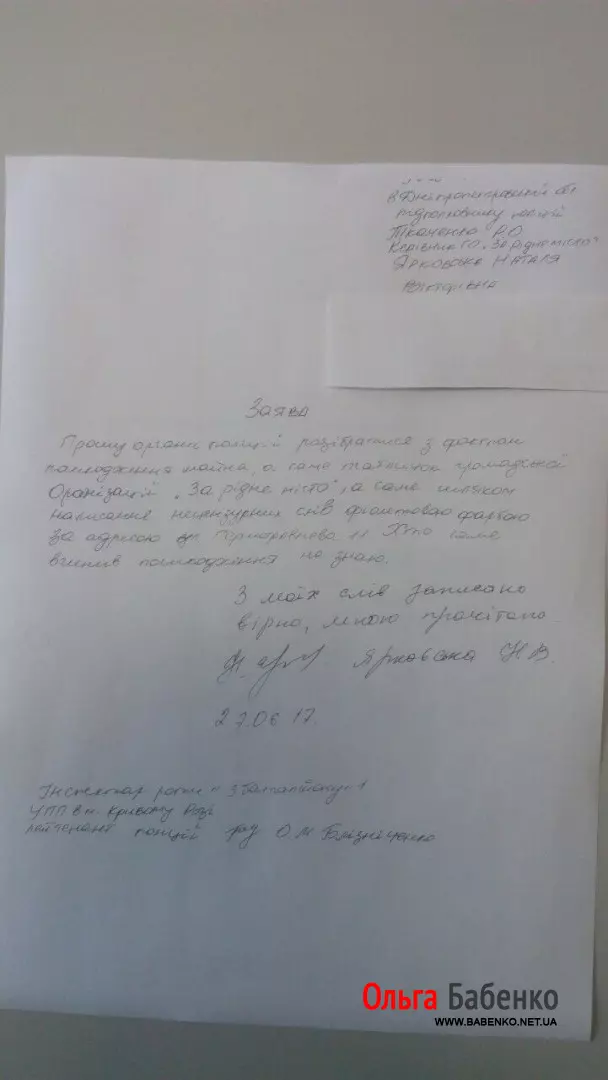 в Дніпропетровській обл
підполковнику поліції
Ткаченко Р.О.
Керівник ГО „За рідне місто"
Ярковська Наталя
Вікторівна
Заява
Прошу органи поліції розібратися з фактом
пошкодження майна, а саме таблички громадської
Організації „За рідне місто", а саме шляхом
написання нецензурних слів фіолетовою фарбою
за адресою 11 Хто саме
вчинив пошкодження не знаю.
З моїх слів записано
вірно, мною прочитано
Ярковська Н.В.
27.06 17.
Інспектор роти 3 батальйону 1
УПП в м. Кривому Розі
лейтенант поліції О.М
Ольга Бабенко
WWW.BABENKO.NET.UA